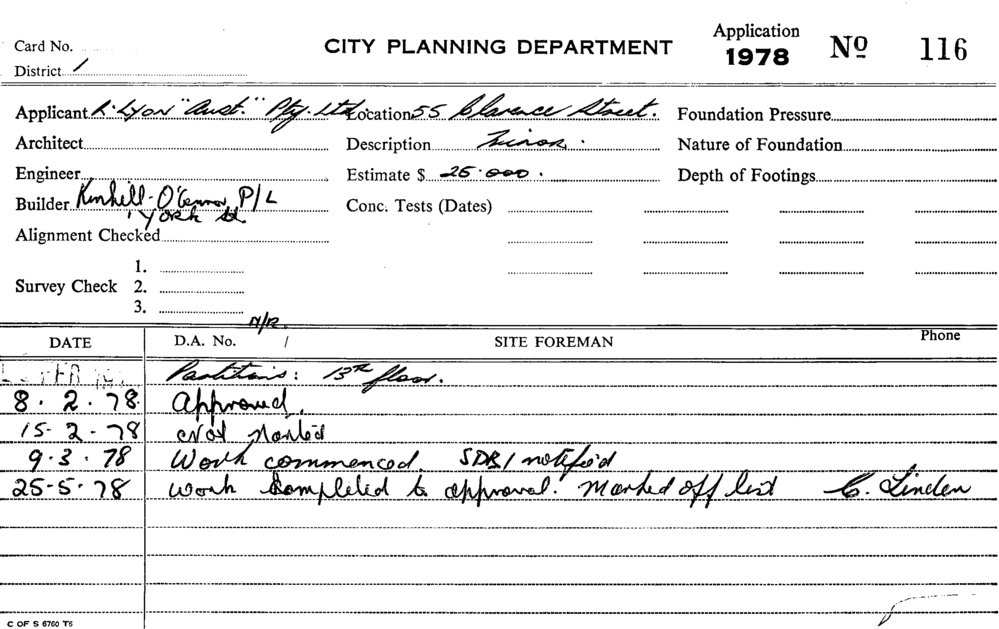 Card No.
CITY PLANNING DEPARTMENT
Application
1978 Nº 116
District 1
Applicant R. Lyon "Aust." Pty. Ltd. Location 55 Clarence Street. Foundation Pressure
Architect Description Minor. Nature of Foundation
Engineer Estimate $ 25.000. Depth of Footings
Builder Kinhill-O'Connor P/L Conc. Tests (Dates)
York St
Alignment Checked
1.
Survey Check 2.
3.
N/R.
DATE D.A. No. / SITE FOREMAN Phone
FEB Partitions: 13th floor.
8. 2. 78 Approved.
15. 2. 78 Not started
9. 3. 78 Work commenced. SDB/ notified
25-5. 78 Work completed to approval. Marked off list C. Linden
C OF S 6760 T6